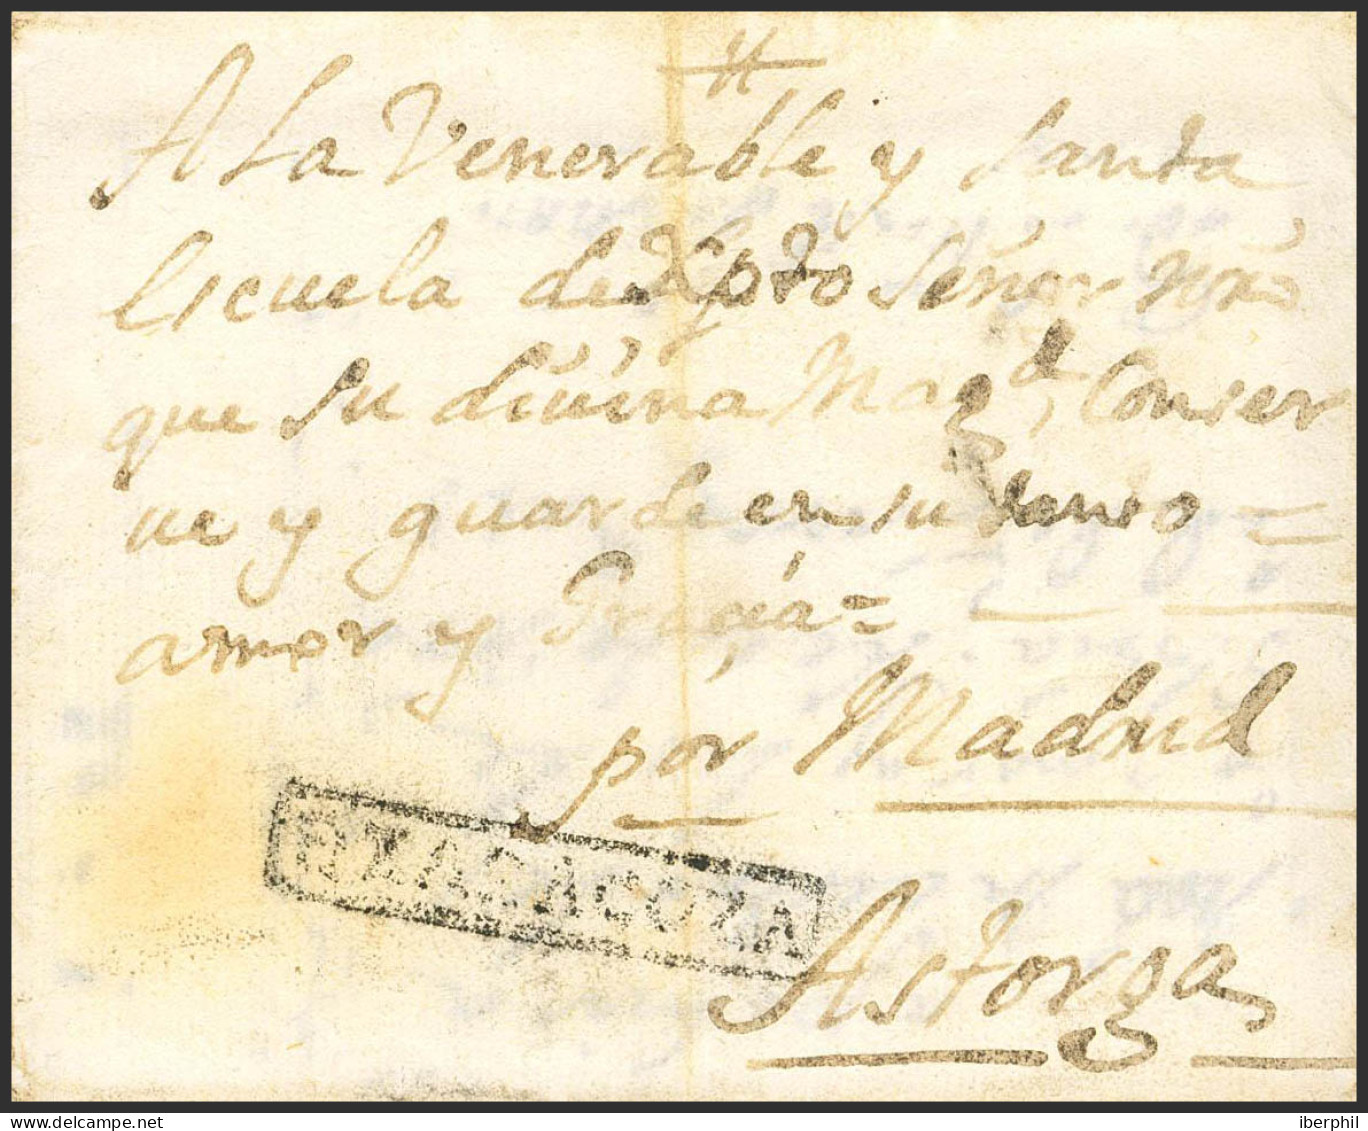 A La Venerable y Santa
Escuela de Xpto Señor nrõ
que su divina Mag.d Conser
ve y guarde en su santo =
amor y Gracia =
por Madrid
ZARAGOZA
Astorga
iberphil